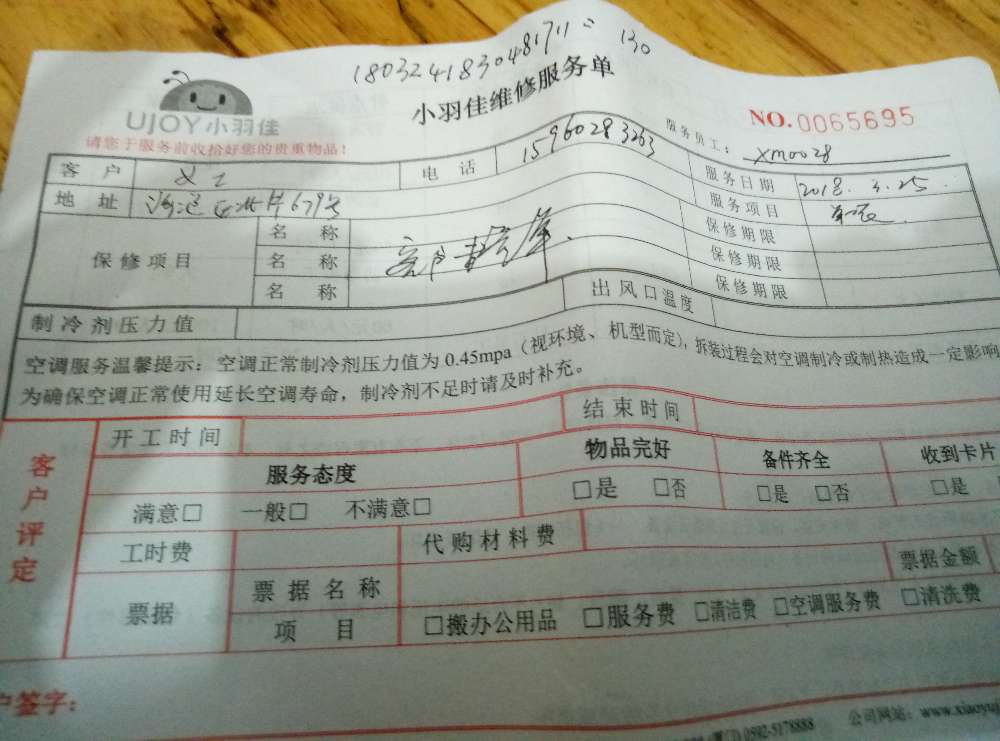 180324183048171
130
小羽佳维修服务单
UJOY小羽佳
请您于服务前收拾好您的贵重物品!
NO.0065695
服务员工: xm0028
客户 电话 15960283263 服务日期 2018.3.25
地址 服务项目
保修项目 名称 保修期限
名称 保修期限
名称 保修期限
制冷剂压力值 出风口温度
空调服务温馨提示:空调正常制冷剂压力值为0.45mpa(视环境、机型而定),拆装过程会对空调制冷或制热造成一定影响
为确保空调正常使用延长空调寿命,制冷剂不足时请及时补充。
客户评定
开工时间 结束时间
服务态度 物品完好 备件齐全 收到卡片
满意□ 一般□ 不满意□ □是 □否 □是 □否 □是
工时费 代购材料费
票据 票据名称 票据金额
项目 □搬办公用品 □服务费 □清洁费 □空调服务费 □清洗费
户签字:
0592-5178888 公司网站:www.xiaoyuj